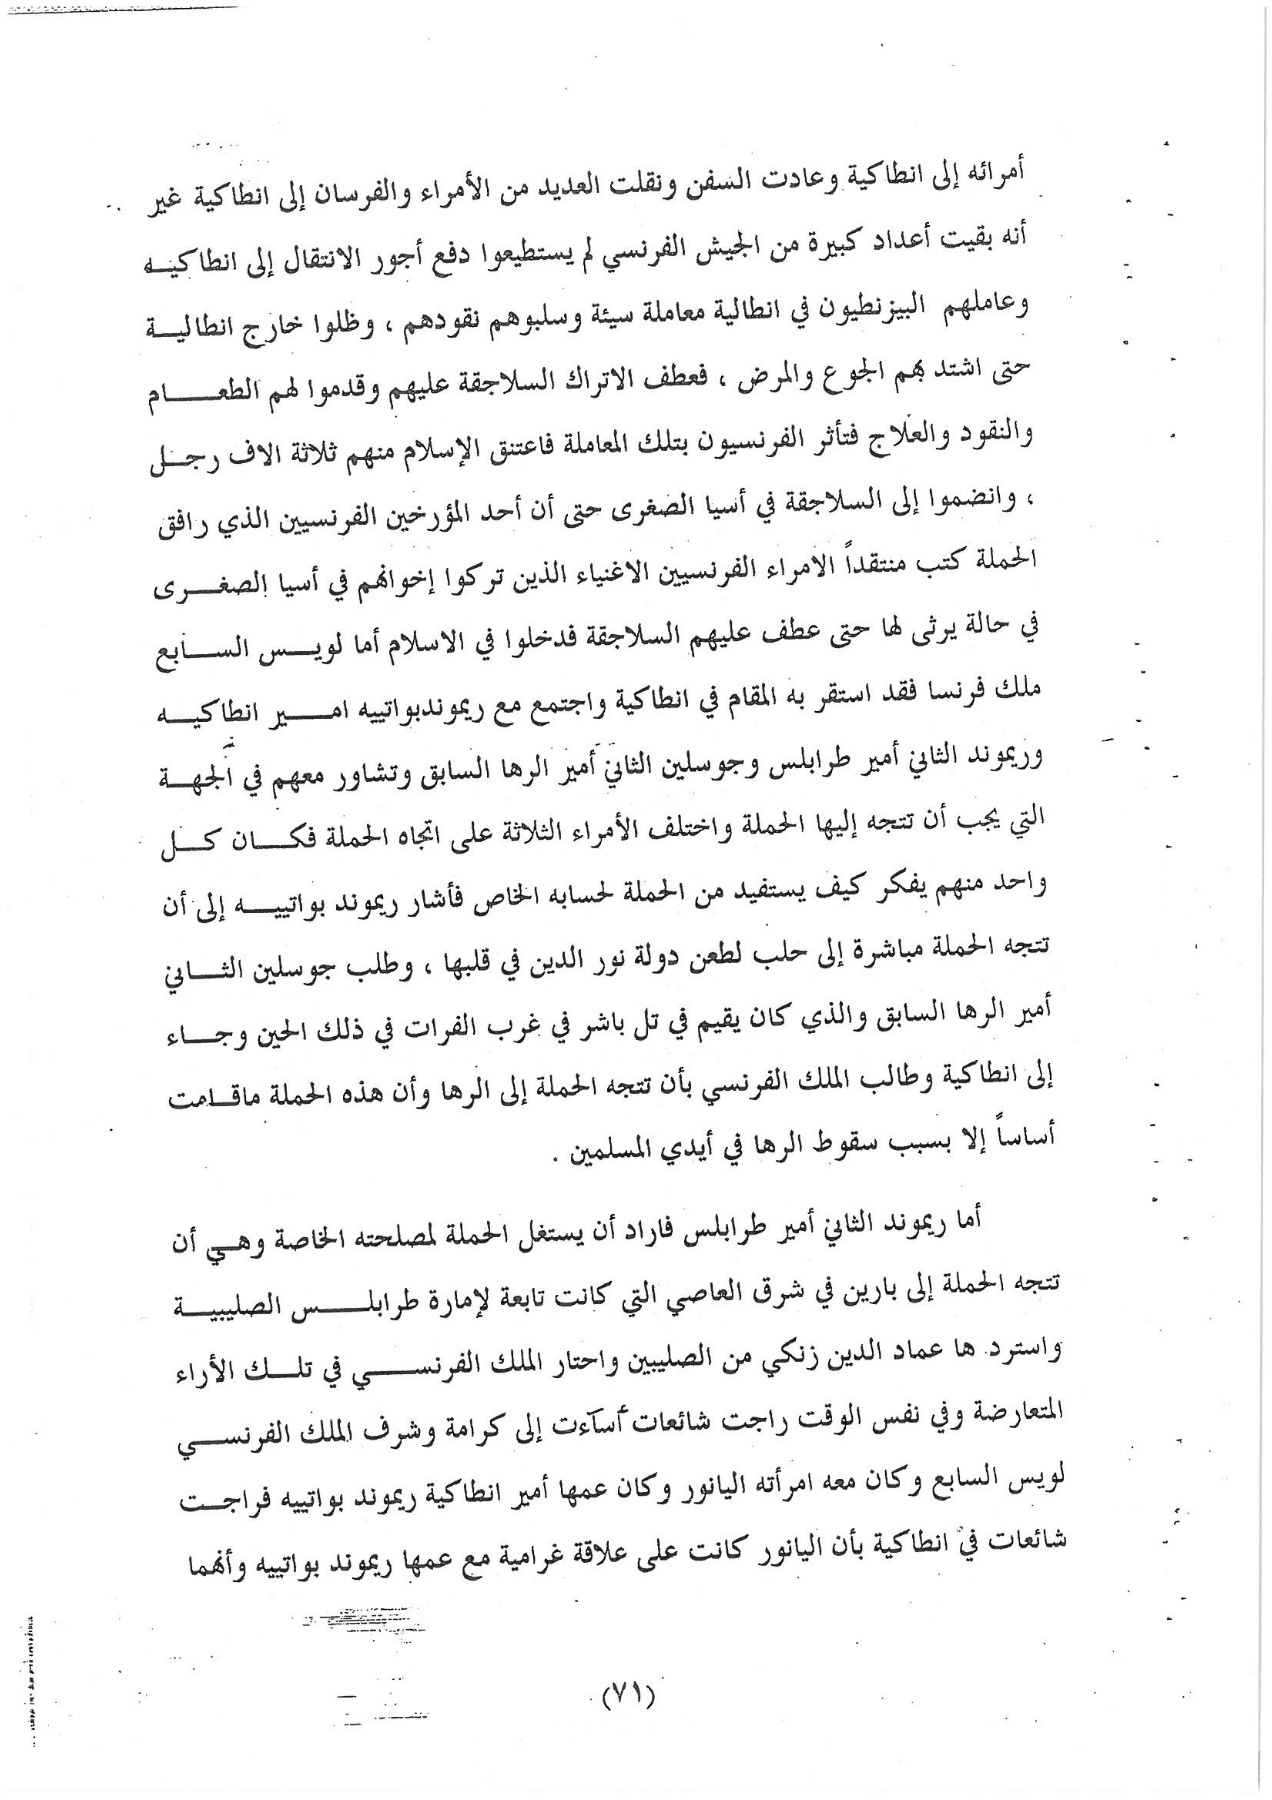 أمرائه إلى انطاكية وعادت السفن ونقلت العديد من الأمراء والفرسان إلى انطاكية غير
أنه بقيت أعداد كبيرة من الجيش الفرنسي لم يستطيعوا دفع أجور الانتقال إلى انطاكيـه
وعاملهم البيزنطيون في انطالية معاملة سيئة وسلبوهم نقودهم ، وظلوا خارج انطاليـــة
حتى اشتد بهم الجوع والمرض ، فعطف الاتراك السلاجقة عليهم وقدموا لهم الطعـــــام
والنقود والعلاج فتأثر الفرنسيون بتلك المعاملة فاعتنق الإسلام منهم ثلاثة الاف رجــل
، وانضموا إلى السلاجقة في أسيا الصغرى حتى أن أحد المؤرخين الفرنسيين الذي رافق
الحملة كتب منتقداً الامراء الفرنسيين الاغنياء الذين تركوا إخوانهم في أسيا الصغــرى
في حالة يرثى لها حتى عطف عليهم السلاجقة فدخلوا في الاسلام أما لويــس الســـابع
ملك فرنسا فقد استقر به المقام في انطاكية واجتمع مع ريموندبواتييه امـــير انطاكيــه
وريموند الثاني أمير طرابلس وجوسلين الثاني أمير الرها السابق وتشاور معهم في الجهــة
التي يجب أن تتجه إليها الحملة واختلف الأمراء الثلاثة على اتجاه الحملة فكـــان كــل
واحد منهم يفكر كيف يستفيد من الحملة لحسابه الخاص فأشار ريموند بواتييـــه إلى أن
تتجه الحملة مباشرة إلى حلب لطعن دولة نور الدين في قلبها ، وطلب جوسلين الثـــاني
أمير الرها السابق والذي كان يقيم في تل باشر في غرب الفرات في ذلك الحين وجـــاء
إلى انطاكية وطالب الملك الفرنسي بأن تتجه الحملة إلى الرها وأن هذه الحملة ماقـامت
أساساً إلا بسبب سقوط الرها في أيدي المسلمين .
أما ريموند الثاني أمير طرابلس فاراد أن يستغل الحملة لمصلحته الخاصة وهــي أن
تتجه الحملة إلى بارين في شرق العاصي التي كانت تابعة لإمارة طرابلــــس الصليبيـــة
واسترد ها عماد الدين زنكي من الصليبين واحتار الملك الفرنســــي في تلــك الأراء
المتعارضة وفي نفس الوقت راجت شائعات أسآءت إلى كرامة وشرف الملك الفرنســي
لويس السابع وكان معه امرأته اليانور وكان عمها أمير انطاكية ريموند بواتييه فراجــت
شائعات في انطاكية بأن اليانور كانت على علاقة غرامية مع عمها ريموند بواتييه وأنهما
(٧١)